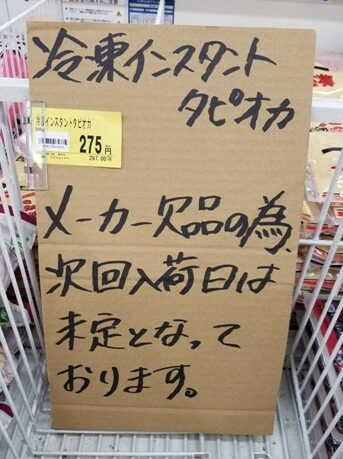 冷凍インスタント
タピオカ
冷凍インスタントタピオカ
300g
275円
297.00円
メーカー欠品の為、
次回入荷日は
未定となって
おります。